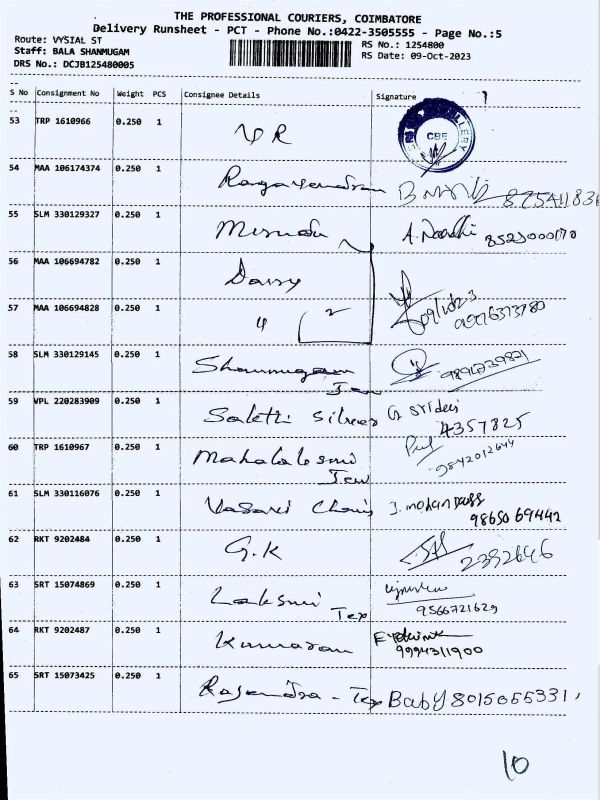 THE PROFESSIONAL COURIERS, COIMBATORE
Delivery Runsheet - PCT - Phone No.:0422-3505555 - Page No.:5
Route: VYSIAL ST
RS No.: 1254800
Staff: BALA SHANMUGAM
RS Date: 09-Oct-2023
DRS No.: DCJB125480005
S No Consignment No Weight PCS Consignee Details Signature
53 TRP 1610966 0.250 1 VR CBE
54 MAA 106174374 0.250 1 Ragavendran
55 SLM 330129327 0.250 1 A.
56 MAA 106694782 0.250 1
57 MAA 106694828 0.250 1 " 2
58 SLM 330129145 0.250 1 Shanmugam
59 VPL 220283909 0.250 1 Sakthi Silver G Sridevi
4357825
60 TRP 1610967 0.250 1 Mahalaksmi
Jew 9842012644
61 SLM 330116076 0.250 1 J. mohan
98650 69442
62 RKT 9202484 0.250 1 G.K 2392646
63 SRT 15074869 0.250 1 Laksmi Tex
9566721629
64 RKT 9202487 0.250 1 Kumaran
9994311900
65 SRT 15073425 0.250 1 Rajendra - Tex Baby 8015055331,
10